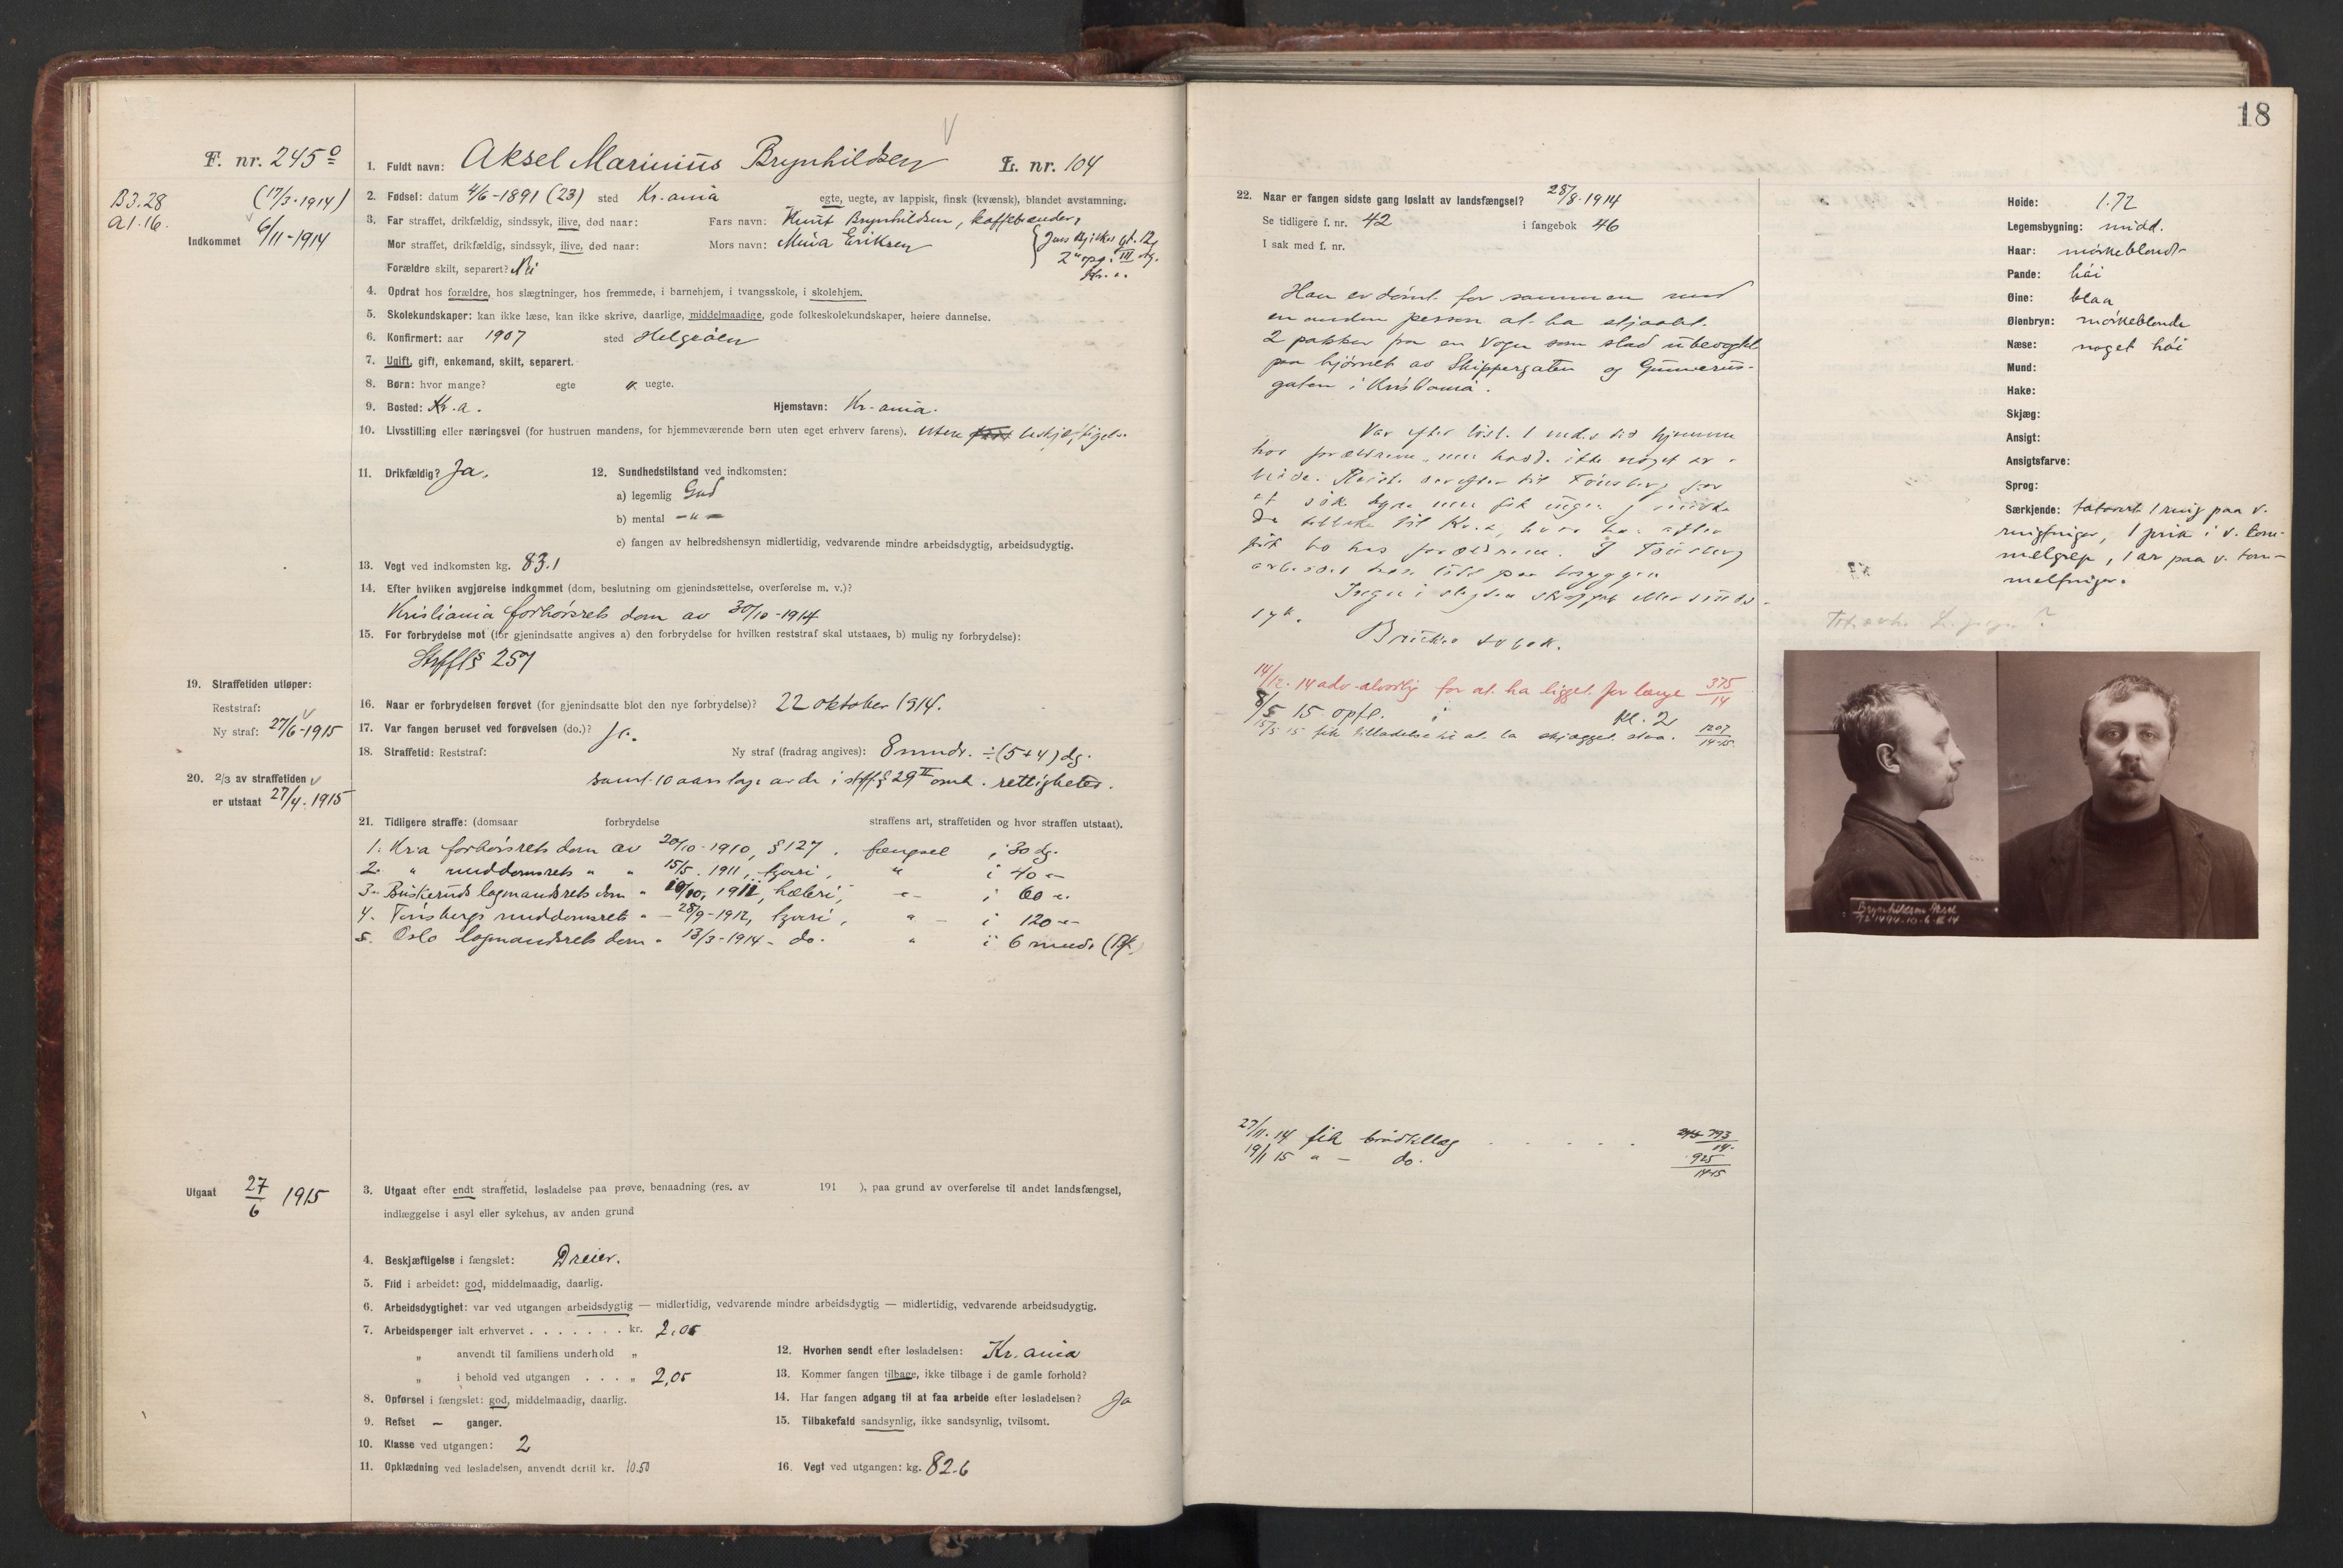 18
F. nr. 245
B3.28
a1.16.
(17/3-1914)
Indkommet 6/11-1914
1. Fuldt navn: Aksel Marinius Brynhildsen L. nr. 104
2. Fødsel: datum 4/6-1891 (23) sted Kr.ania egte, uegte, av lappisk, finsk (kvænsk), blandet avstamning.
3. Far straffet, drikfældig, sindssyk, ilive, død naar: Fars navn: Knut Brynhildsen, kaffebrænder,
Mor straffet, drikfældig, sindssyk, ilive, død naar: Mors navn: Mina Eriksen
Jens Bjelkes gt. 12
2 opg. III etg.
Kr.a.
Forældre skilt, separert? Nei
4. Opdrat hos forældre, hos slægtninger, hos fremmede, i barnehjem, i tvangsskole, i skolehjem.
5. Skolekundskaper: kan ikke læse, kan ikke skrive, daarlige, middelmaadige, gode folkeskolekundskaper, høiere dannelse.
6. Konfirmert: aar 1907 sted Helgøen
7. Ugift, gift, enkemand, skilt, separert.
8. Børn: hvor mange? egte uegte.
9. Bosted: Kr.a. Hjemstavn: Kr.ania.
10. Livsstilling eller næringsvei (for hustruen mandens, for hjemmeværende børn uten eget erhverv farens). Uten beskjæftigelse
11. Drikfældig? Ja. 12. Sundhedstilstand ved indkomsten:
a) legemlig God
b) mental — " —
c) fangen av helbredshensyn midlertidig, vedvarende mindre arbeidsdygtig, arbeidsudygtig.
13. Vegt ved indkomsten kg. 83.1
14. Efter hvilken avgjørelse indkommet (dom, beslutning om gjenindsættelse, overførelse m. v.)?
Kristiania forhørsrets dom av 30/10-1914
15. For forbrydelse mot (for gjenindsatte angives a) den forbrydelse for hvilken reststraf skal utstaaes, b) mulig ny forbrydelse):
Strfl § 257
19. Straffetiden utløper:
Reststraf:
Ny straf: 27/6-1915
16. Naar er forbrydelsen forøvet (for gjenindsatte blot den nye forbrydelse)? 22 oktober 1914.
17. Var fangen beruset ved forøvelsen (do.)? Ja.
18. Straffetid: Reststraf: Ny straf (fradrag angives): 8 mndr. ÷ (5+4) dg.
samt 10 aars tap av de i strfl § 29 II omh. rettigheter.
20. 2/3 av straffetiden
er utstaat 27/4. 1915
21. Tidligere straffe: (domsaar forbrydelse straffens art, straffetiden og hvor straffen utstaat).
1. Kr.a forhørsrets dom av 20/10-1910, § 127. fængsel i 30 dg.
2. " meddomsrets " " 15/5. 1911, tyveri, " i 40 "
3. Buskeruds lagmandsrets dom " 10/10, 1911, hæleri, " i 60 "
4. Tønsbergs meddomsrets " 28/9-1912, tyveri, " i 120 "
5. Oslo lagmandsrets dom " 13/3-1914 - do. " i 6 mndr
Utgaat 27/6 1915
3. Utgaat efter endt straffetid, løsladelse paa prøve, benaadning (res. av 191 ), paa grund av overførelse til andet landsfængsel,
indlæggelse i asyl eller sykehus, av anden grund
4. Beskjæftigelse i fængslet: Dreier.
5. Flid i arbeidet: god, middelmaadig, daarlig.
6. Arbeidsdygtighet: var ved utgangen arbeidsdygtig — midlertidig, vedvarende mindre arbeidsdygtig — midlertidig, vedvarende arbeidsudygtig.
7. Arbeidspenger ialt erhvervet . . . . . . . kr. 2,05
" anvendt til familiens underhold "
" i behold ved utgangen . . . " 2,05
8. Opførsel i fængslet: god, middelmaadig, daarlig.
9. Refset — ganger.
10. Klasse ved utgangen: 2
11. Opklædning ved løsladelsen, anvendt dertil kr. 10.50
12. Hvorhen sendt efter løsladelsen: Kr.ania
13. Kommer fangen tilbage, ikke tilbage i de gamle forhold?
14. Har fangen adgang til at faa arbeide efter løsladelsen? Ja
15. Tilbakefald sandsynlig, ikke sandsynlig, tvilsomt.
16. Vegt ved utgangen: kg. 82.6
22. Naar er fangen sidste gang løslatt av landsfængsel? 28/8-1914
Se tidligere f. nr. 42 i fangebok 46
I sak med f. nr.
Han er dømt for sammen med
en anden person at ha stjaalet
2 pakker fra en vogn som stod ubevogtet
paa hjørnet av Skippergaten og Gunnerus-
gaten i Kristiania.
Var efter løsl. 1 mds tid hjemme
hos forældrene, men hadde ikke noget ar-
beide. Reiste derefter til Tønsberg for
at søke hyre men fik ingen, reiste
da tilbake til Kr.a, hvor han atter
fik bo hos forældrene. I Tønsberg
arbeidet han litt paa bryggen
Ingen i slegten straffet eller sinds-
syk.
Bruker tobak.
14/12-14 adv. alvorlig for at ha ligget for længe 375/14
8/5 15 opfl. i kl. 2
15/5 15 fik tilladelse til at la skjægget staa. 1207/14-15
27/11-14 fik brødtillæg . . . . . 793/14
19/1 15 " — do. 925/14-15
Høide: 1.72
Legemsbygning: midd.
Haar: mørkeblondt
Pande: høi
Øine: blaa
Øienbryn: mørkeblonde
Næse: noget høi
Mund:
Hake:
Skjæg:
Ansigt:
Ansigtsfarve:
Sprog:
Særkjende: tatovert 1 ring paa v.
ringfinger, 1 prik i v. tom-
melgrep, 1 ar paa v. tom-
melfinger.
Brynhildsen Aksel